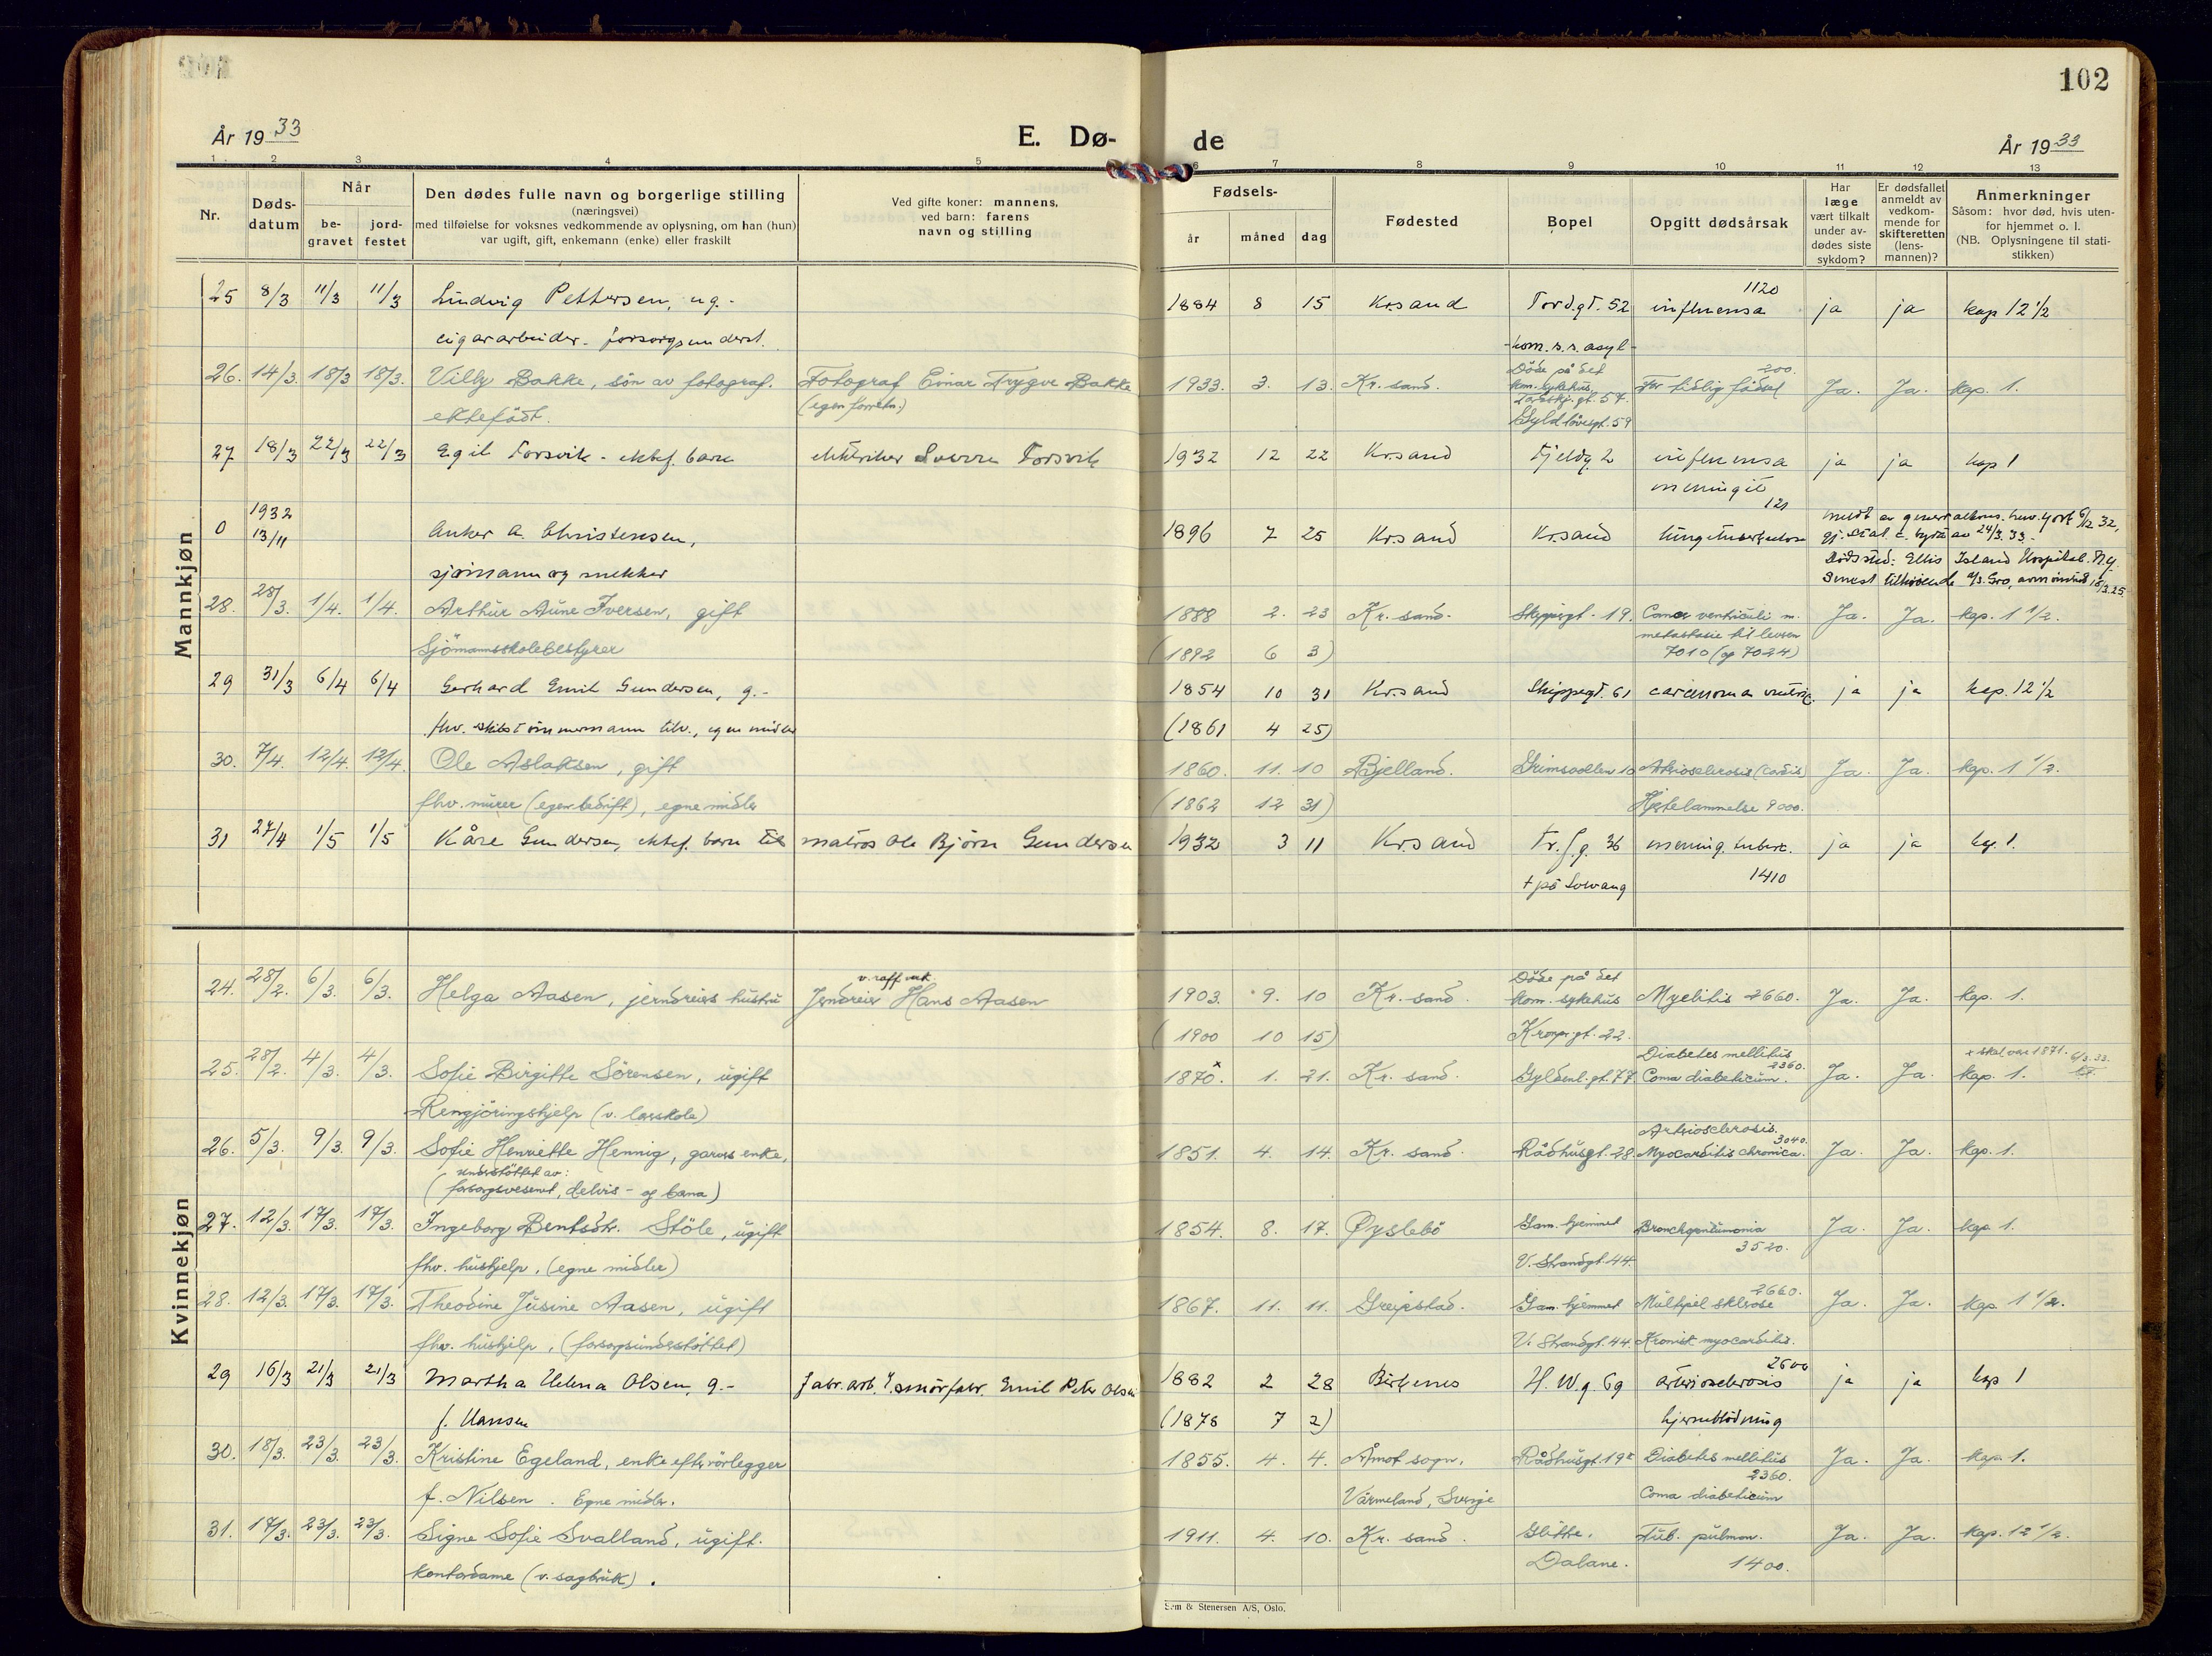 102
År 1933
E. Dø-
de
År 1933
1 2 3 4 5 6 7 8 9 10 11 12 13
Nr.
Døds-
datum
Når
be-
gravet
jord-
festet
Den dødes fulle navn og borgerlige stilling
(næringsvei)
med tilføielse for voksnes vedkommende av oplysning, om han (hun)
var ugift, gift, enkemann (enke) eller fraskilt
Ved gifte koner: mannens,
ved barn: farens
navn og stilling
Fødsels-
år måned dag
Fødested
Bopel
Opgitt dødsårsak
Har
læge
vært tilkalt
under av-
dødes siste
sykdom?
Er dødsfallet
anmeldt av
vedkom-
mende for
skifteretten
(lens-
mannen)?
Anmerkninger
Såsom: hvor død, hvis uten-
for hjemmet o. l.
(NB. Oplysningene til stati-
stikken)
Mannkjøn
25 8/3 11/3 11/3 Ludvig Pettersen, ug.- 1884 8 15 Kr.sand Tord.gt. 52 influensa 1120 ja ja kap 12 1/2
cigararbeider. forsorgsunderst. kom. s.s. asyl
26. 14/3. 18/3 18/3. Villy Bakke, sön av fotograf. Fotograf Einar Trygve Bakke 1933. 3. 13. Kr. sand. Döde på det kom. sykehus, For tidlig födsel 200. Ja. Ja. kap. 1.
ektefödt. (egen forretn.) Gyldlövesgt. 59
27 18/3 22/3 22/3 Egil Torsvik - ektef. barn elektriker Sverre Torsvik 1932 12 22 Krsand Fjeldg 2 influensa ja ja kap 1
meningit 121
0 1932 13/11 Anker A. Christensen, 1896 7 25 Krsand Krsand lungetuberkulose meldt av generalkons. New York 6/12 32,
gj. stat. c. byrå av 24/3 33.-
sjømann og snekker Dødssted: Ellis Island Hospital. N.Y.
28. 28/3. 1/4. 1/4. Arthur Aune Iversen, gift 1888 2. 23 Kr. sand. Skippergt. 19. Cancer ventriculi m. Ja. Ja. kap. 1 1/2.
metastasie til leveren
Sjömannsskolebestyrer (1892 6 3) 7010 (og 7024)
29 31/3 6/4 6/4 Gerhard Emil Gundersen, g.- 1854 10 31 Kr.sand Skippegt. 61 carcinoma ventric. ja ja kap. 12 1/2
fhv. skibstømmermann tilv., egne midler (1861 4 25)
30. 7/4. 12/4. 12/4. Ole Aslaksen, gift 1860. 11. 10 Bjelland. Grimsvollen 10 Arteriosclerosis (cordis) Ja. Ja. kap. 1 1/2.
fhv. murer (egen bedrift), egne midler (1862 12 31) Hjertelammelse 9000.
31 27/4 1/5 1/5 Kåre Gundersen, ektef. barn til matros Ole Bjørn Gundersen 1932 3 11 Krsand Fr.f.g. 36 mening. tuberk. ja ja kap. 1.
+ på Solvang 1410
Kvinnekjøn
24. 28/2. 6/3. 6/3. Helga Aasen, jerndreiers hustru v. raff.verk. Jerndreier Hans Aasen 1903. 9. 10 Kr. sand. Döde på det kom. sykehus Myelitis 2660. Ja. Ja. kap. 1.
(1900 10 15) Kronpr.gt. 22.
25. 28/2. 4/3. 4/3. Sofie Birgitte Sörensen, ugift 1870.x 1. 21. Kr. sand. Gyldenl. gt. 77 Diabetes mellitus 2360. Coma diabeticum. Ja. Ja. kap. 1. x skal være 1871. 6/3.33.
Rengjöringshjelp (v. lærskole)
26. 5/3. 9/3. 9/3. Sofie Henriette Hennig, garvers enke, 1851. 4. 14. Kr. sand. Rådhusgt. 28. Arteriosclerosis. 3040. Myocarditis chronica. Ja. Ja. kap. 1.
understöttet av:
(forsorgsvesenet, delvis - og barna)
27. 12/3. 17/3. 17/3. Ingeborg Bentsdtr. Stöle, ugift 1854. 8. 17. Øyslebö Gam. hjemmet Bronchopneumonia Ja. Ja. kap. 1.
fhv. hushjelp. (egne midler) V. Strandgt. 44. 3520.
28. 12/3. 17/3. 17/3. Theodine Jusine Aasen, ugift 1867. 11. 11. Greipstad. Gam. hjemmet Multipel sklerose 2660. Ja. Ja. kap. 1 1/2.
fhv. hushjelp. (forsorgsunderstöttet) V. Strandgt. 44. Kronisk myocarditis.
29 16/3 21/3 21/3 Martha Helena Olsen, g.- fabr.arb. v. smørfabr. Emil Peter Olsen 1882 2 28 Birkenes H.W.g. 69 2600 arteriosclerosis ja ja kap 1
f. Hansen (1878 7 2) hjerneblødning
30. 18/3. 23/3. 23/3. Kristine Egeland, enke efter rörlegger 1855. 4. 4. Åmot sogn, Rådhusgt. 19 Diabetes mellitus Ja. Ja. kap. 1.
2360.
f. Nilsen. Egne midler. Värmeland, Sverige Coma diabeticum
31. 17/3. 23/3. 23/3. Signe Sofie Svalland, ugift. 1911. 4. 10. Kr. sand. Glitte, Tub. pulmon. Ja. Ja. kap. 12 1/2.
kontordame (v. sagbruk). Dalane. 1400.
Sem & Stenersen A/S, Oslo.